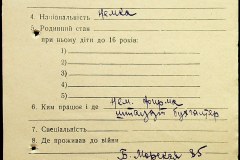 4. Національність Немка
5. Родинний стан
при ньому діти до 16 років:
1)
2)
3)
4)
5)
6. Ким працює і де Нем. фирма
штаудт бухгалтер
7. Спеціальність
8. Де проживав до війни
Б. Морская 35